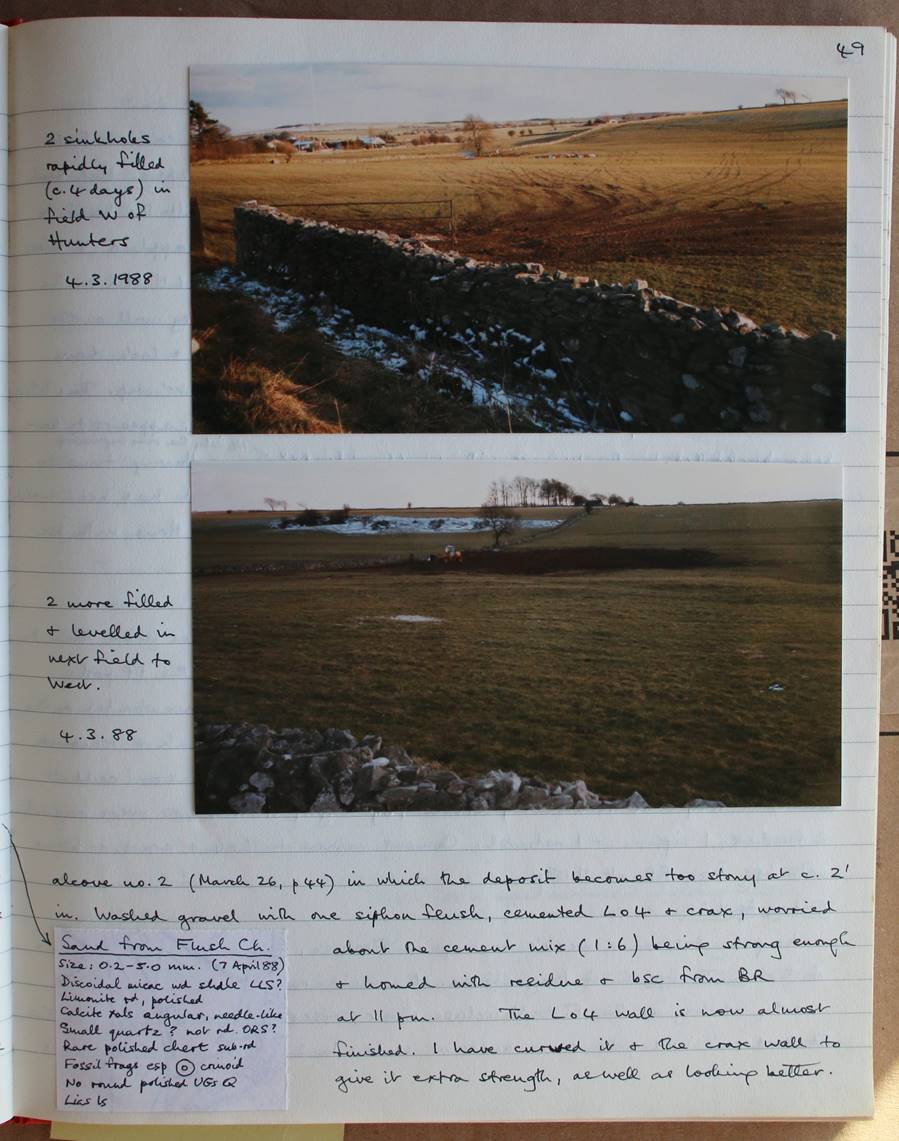 49
2 sinkholes
rapidly filled
(c. 4 days) in
field W of
Hunters
4.3.1988
2 more filled
+ levelled in
next field to
West.
4.3.88
alcove no. 2 (March 26, p44) in which the deposit becomes too stony at c. 2'
in. Washed gravel with one siphon flush, cemented Lo4 + crax, worried
about the cement mix (1:6) being strong enough
+ homed with residue + bsc from BR
at 11 pm. The Lo4 wall is now almost
finished. I have curved it + the crax wall to
give it extra strength, as well as looking better.
Sand from Flush Ch.
Size: 0.2-5.0 mm. (7 April 88)
Discoidal micac wd shale LLS?
Limonite rd, polished
Calcite xals angular, needle-like
Small quartz ? not rd. ORS?
Rare polished chert sub-rd
Fossil frags esp ⊙ crinoid
No round polished UGS Q
Lias ls